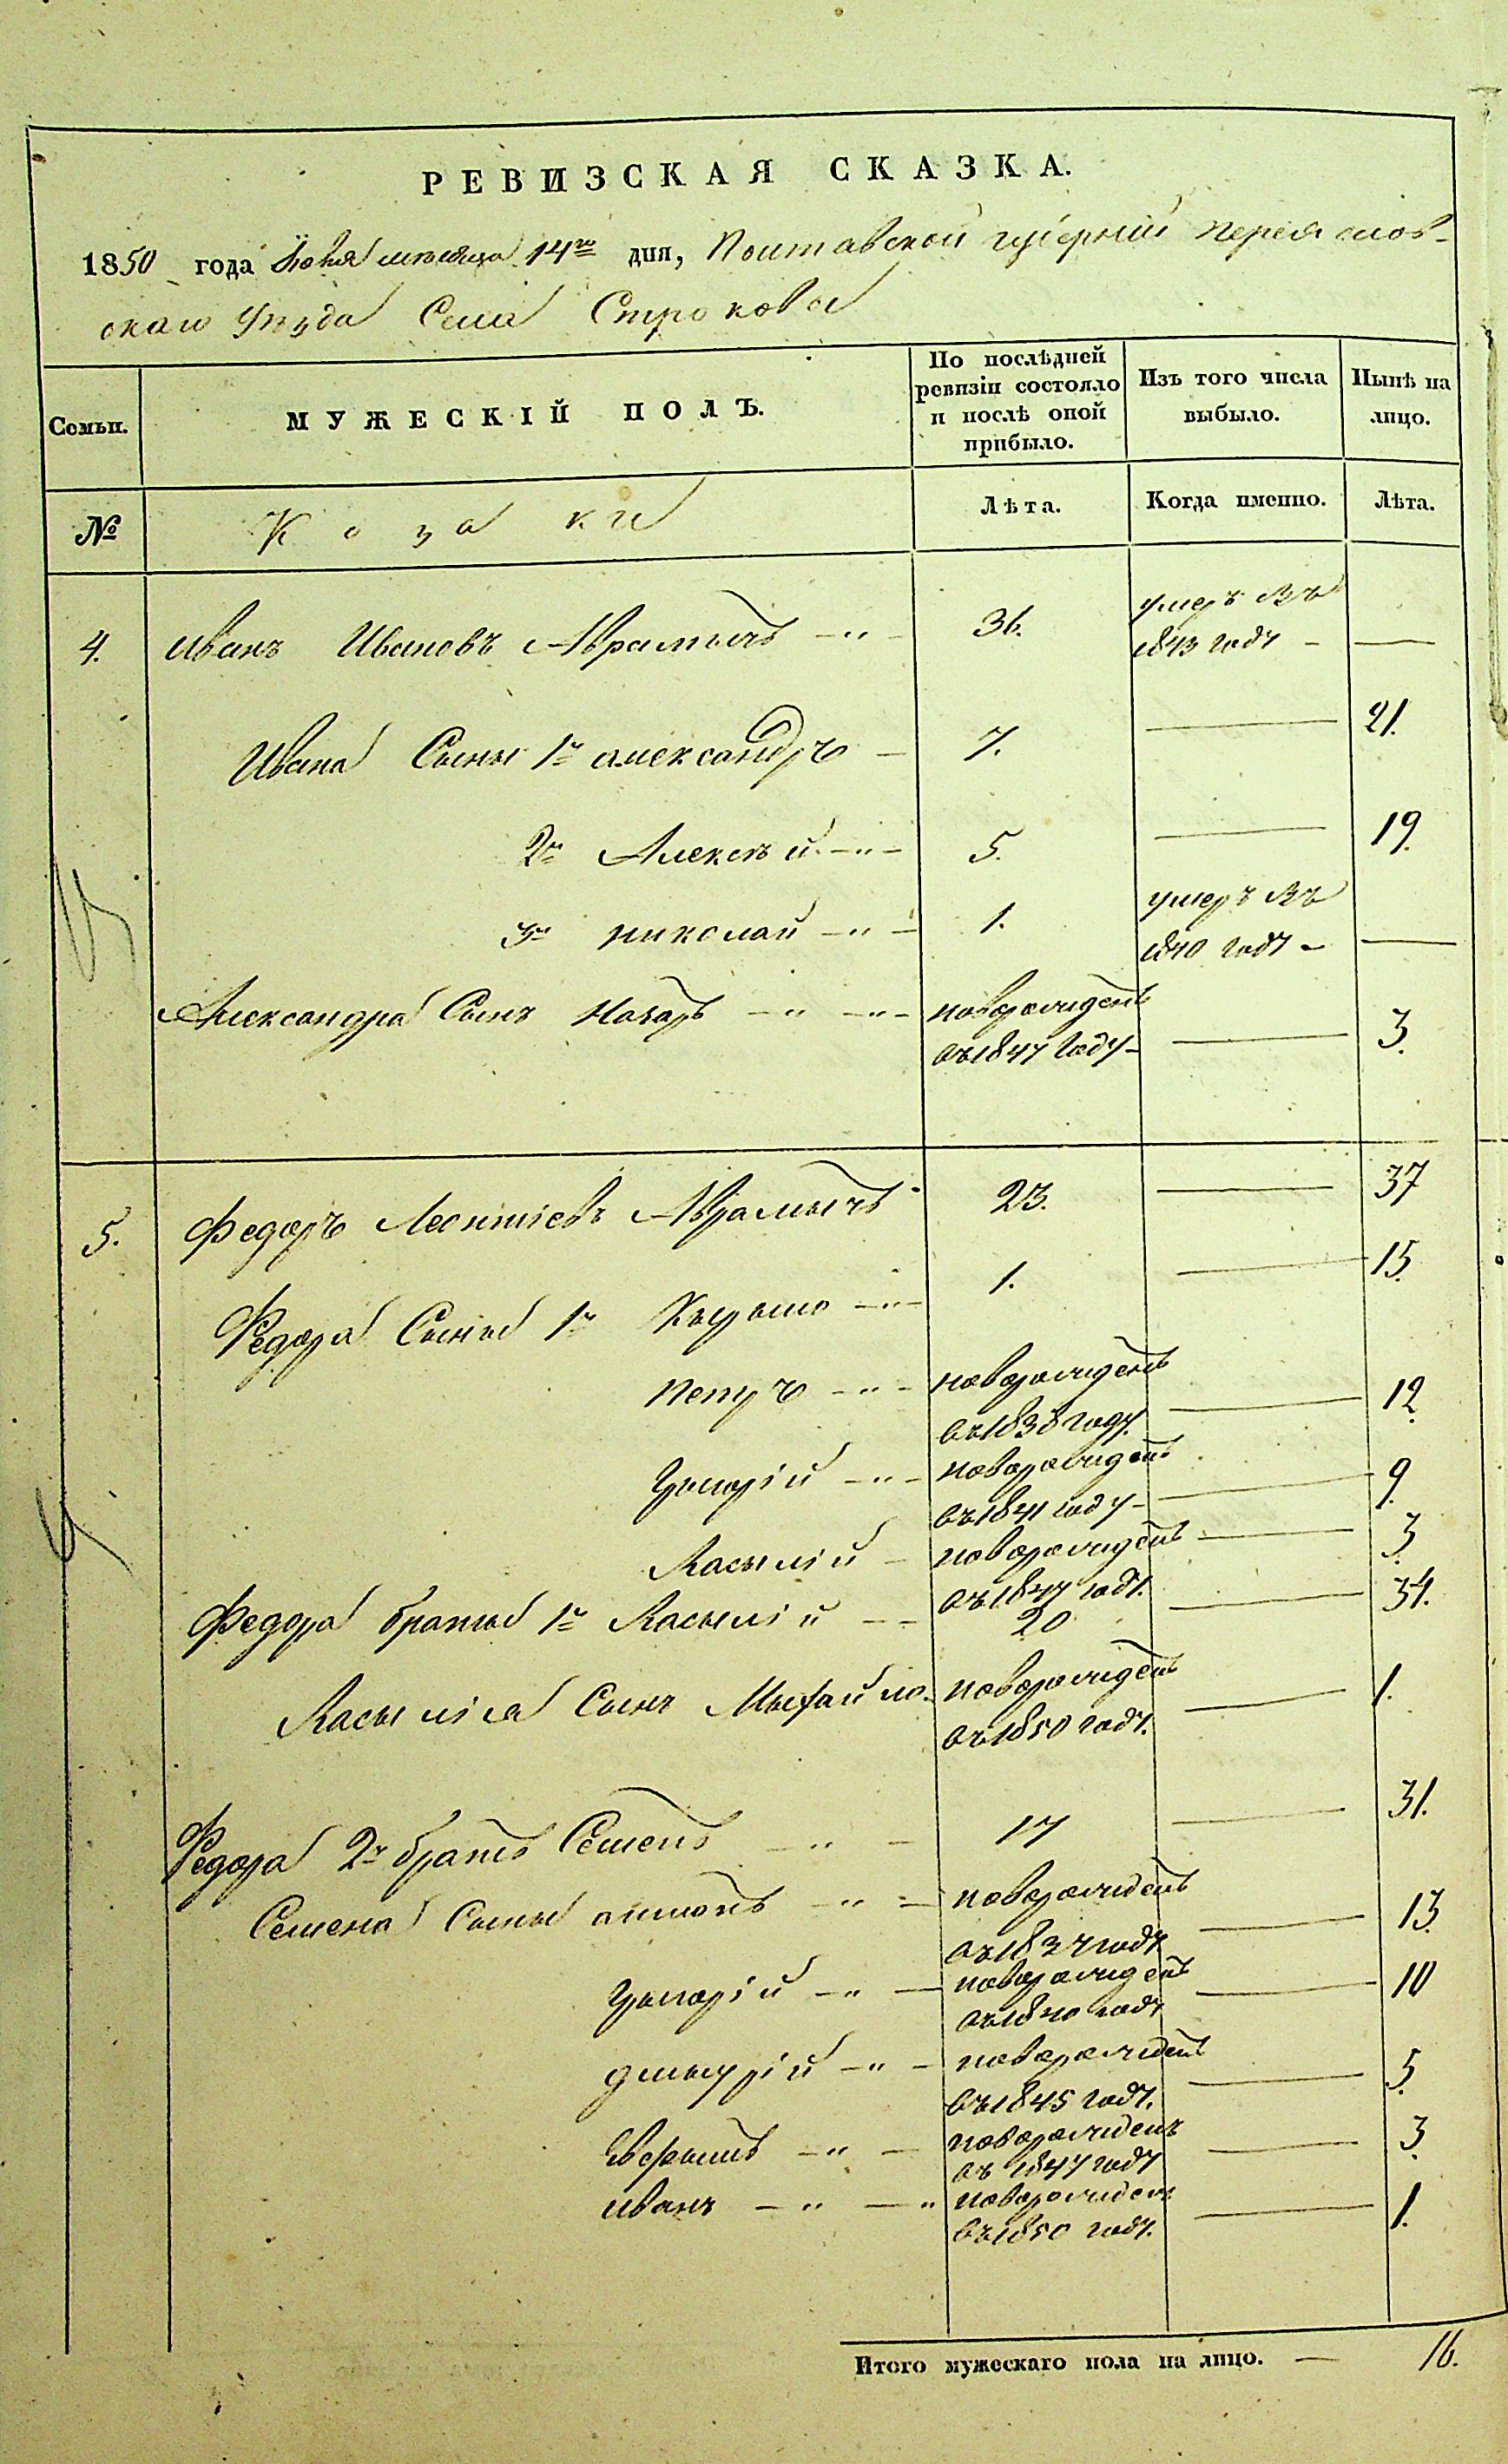 РЕВИЗСКАЯ СКАЗКА.
1850 года Июня месяца 14го дня, Полтавской губерніи Переяслов-
скаго Уезда Села Строкова
Семьи.
МУЖЕСКІЙ ПОЛЪ.
По послѣдней ревизіи состояло и послѣ оной прибыло.
Изъ того числа выбыло.
Нынѣ на лицо.
№
Козаки
Лѣта.
Когда именно.
Лѣта.
4. Иванъ Ивановъ Аврамычъ 36. умеръ въ
1843 году
Ивана Сыны 1й александръ 7. 21.
2й Алексѣй 5. 19.
3й николай 1. умеръ въ
1840 году
Александра Сынъ Назаръ новорожденъ
въ 1847 году 3.
5. Федоръ Леонтіевъ Аврамычъ 23. 37
Федора Сыны 1й 1. 15.
петръ новорожденъ
въ 1838 году. 12.
Григорій новорожденъ
въ 1841 году 9.
Васылій новорожденъ 3.
въ 1847 году.
Федора браты 1й Васылій 20 34.
Васылія Сынъ Мыхайло новорожденъ
въ 1850 году. 1.
Федора 2й братъ Семенъ 17 31.
Семена Сыны антонъ новорожденъ
въ 1837 году 13.
Григорій новорожденъ
въ 1840 году 10
дмытрій новорожденъ
въ 1845 году. 5.
Ефымъ новорожденъ
въ 1847 году 3.
иванъ новорожденъ
въ 1850 году. 1.
Итого мужескаго пола на лицо. — 16.